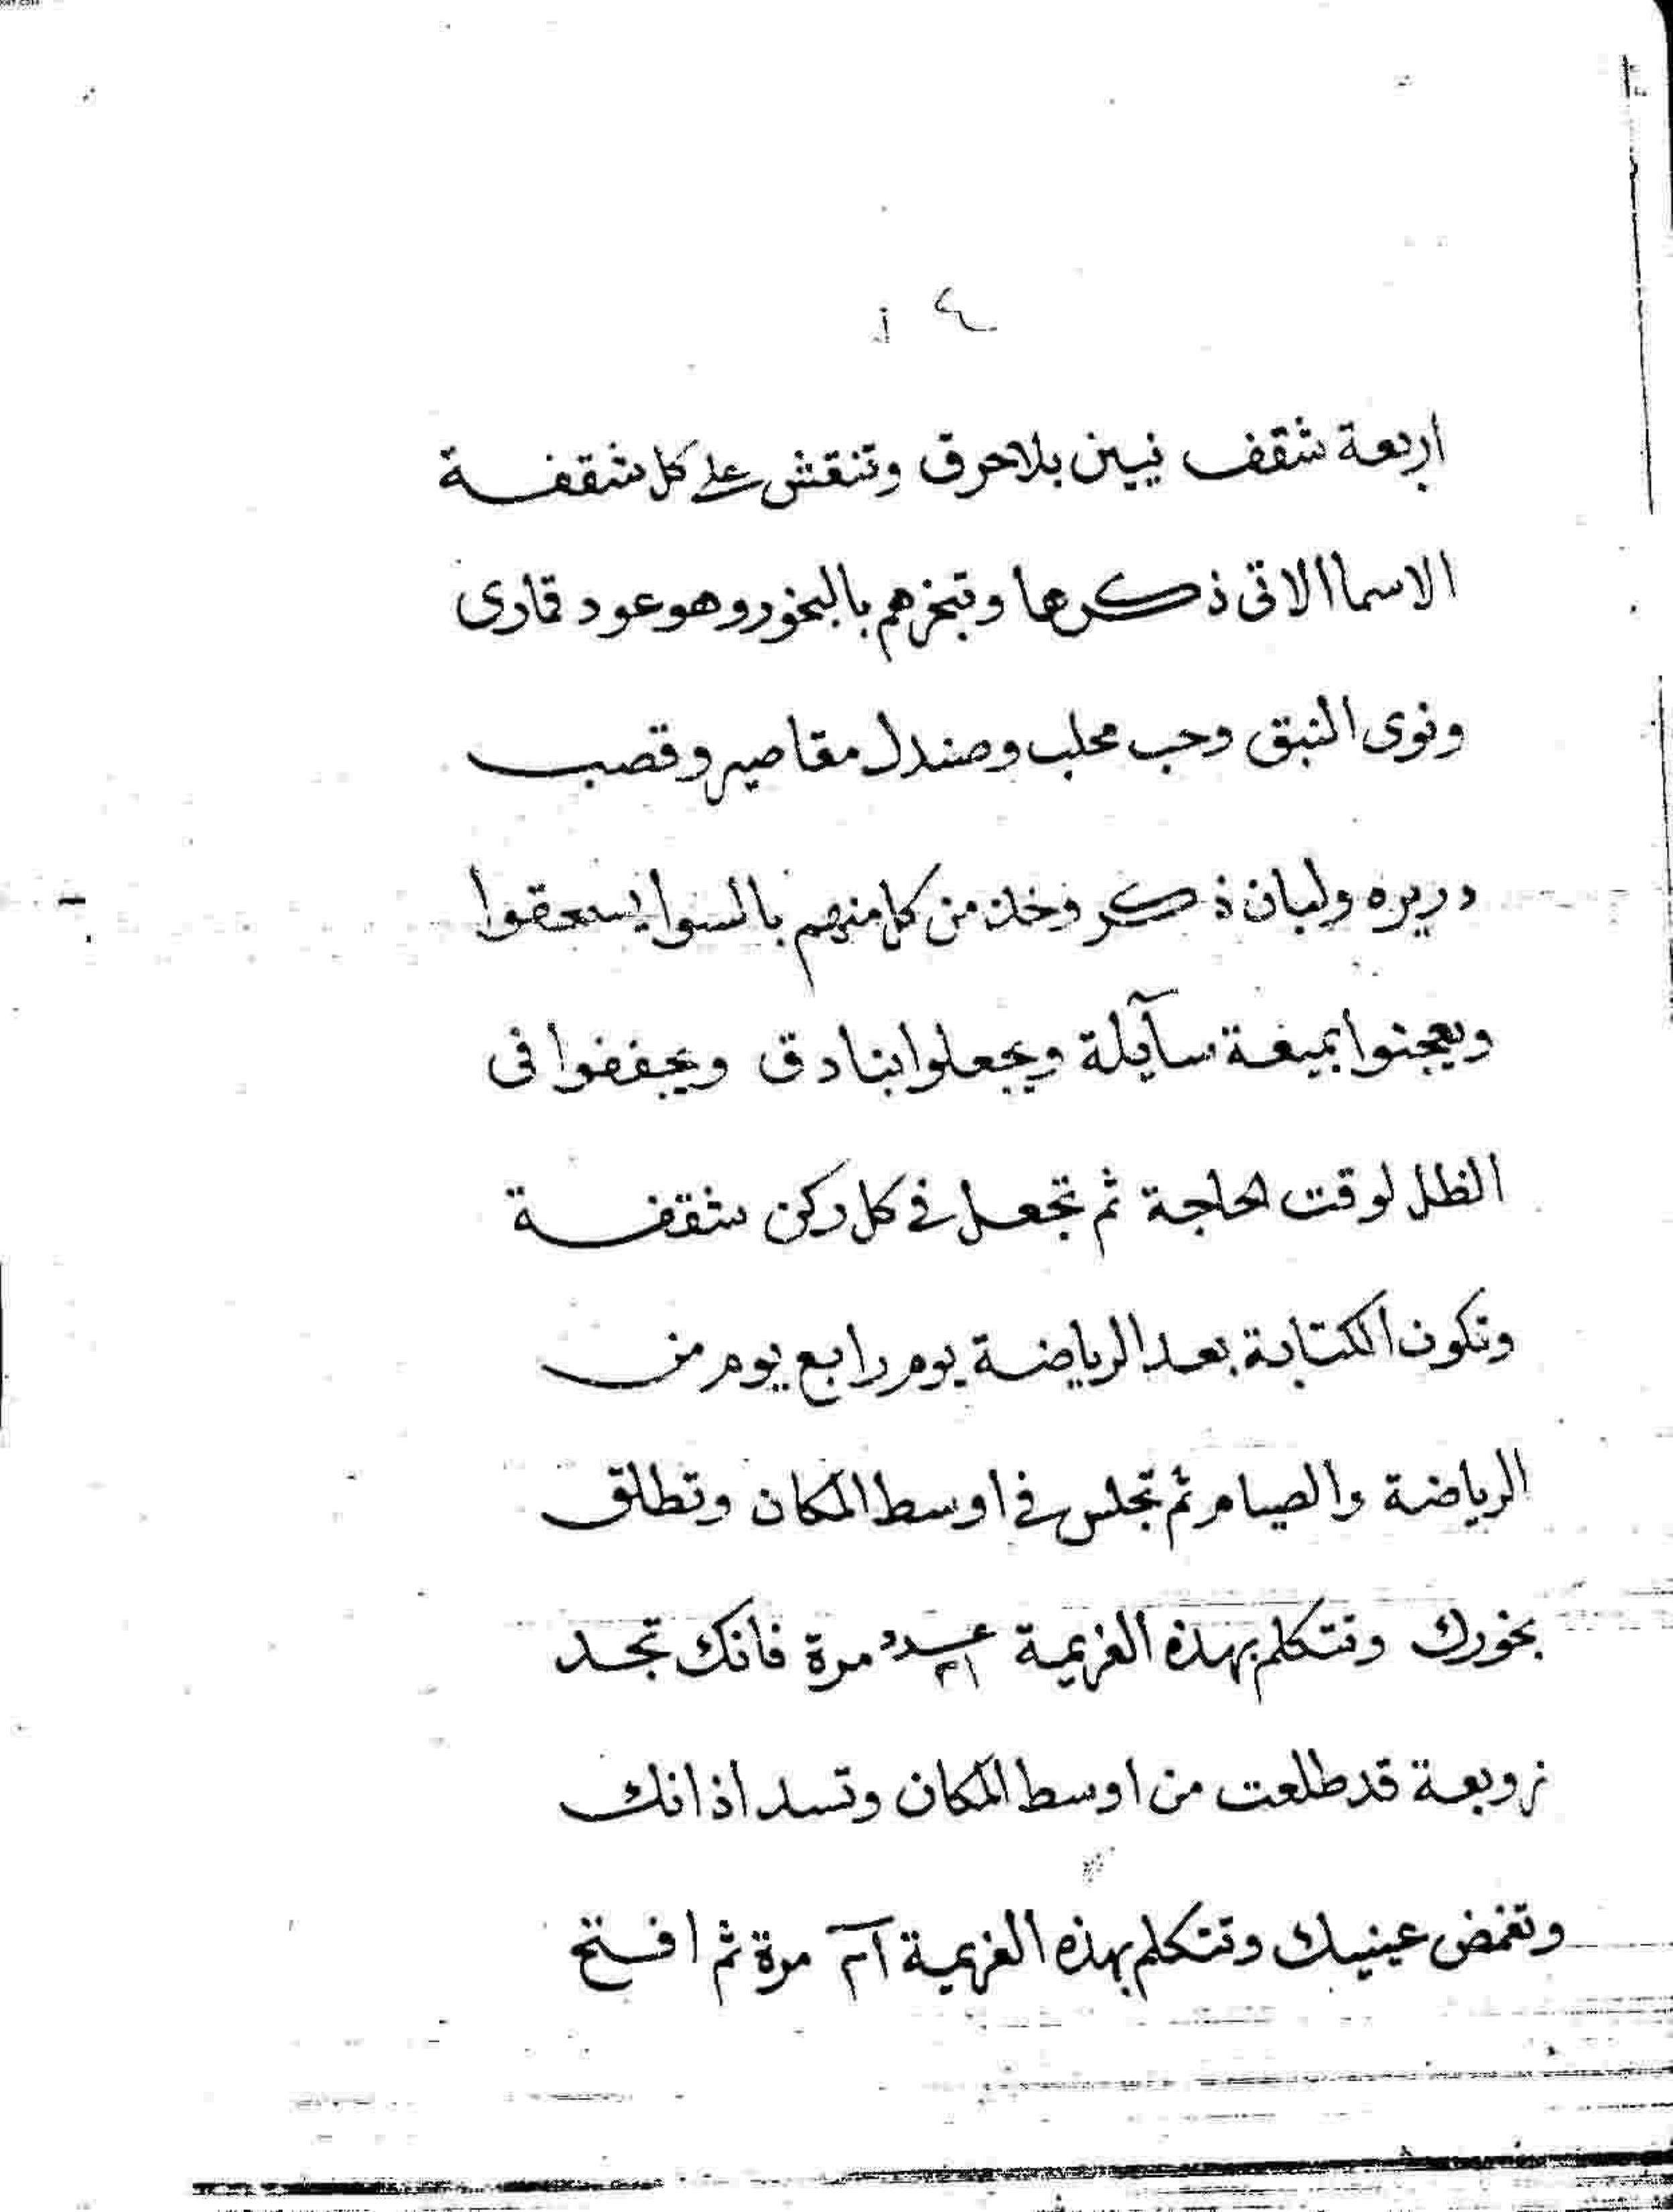 ٤
اربعة شقف نيين بلا حرق وتنقش على كل شقفة
الاسما الاتى ذكرها وتبخرهم بالبخور وهو عود قمارى
ونوى النبق وحب محلب وصندل مقاصير وقصب
دريره ولبان ذكر وخذ من كل منهم بالسوا يسحقوا
ويعجنوا بميعة سآيلة ويجعلوا بنادق ويجففوا فى
الظل لوقت الحاجة ثم تجعل فى كل ركن شقفة
وتكون الكتابة بعد الرياضة يوم رابع يوم من
الرياضة والصيام ثم تجلس فى اوسط المكان وتطلق
بخورك وتتكلم بهذه العزيمة عدد مرة فانك تجد
زوبعة قد طلعت من اوسط المكان وتسد اذانك
وتغمض عينيك وتتكلم بهذه العزيمة مرة ثم افتح